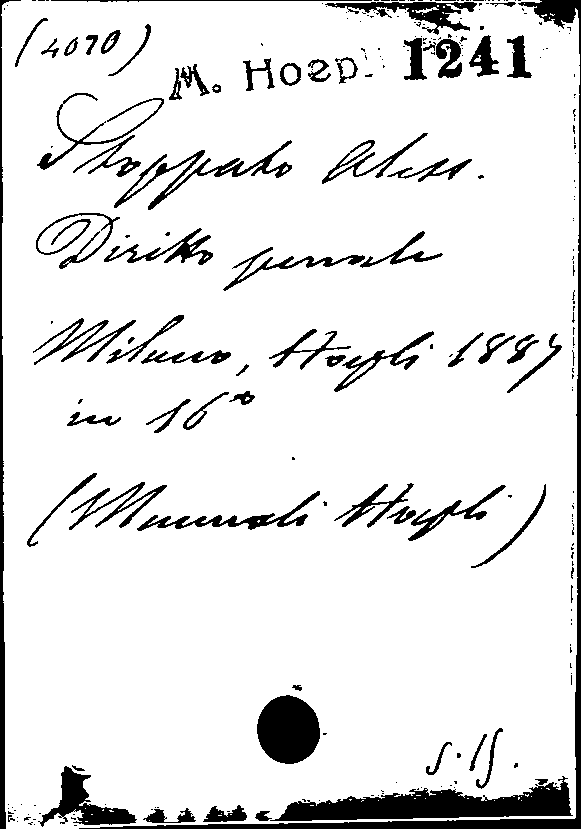 (4070)
M. Hoepli 1241
Stoppato Aless.
Diritto penale
Milano, Hoepli 1887
in 16°
(Manuali Hoepli)